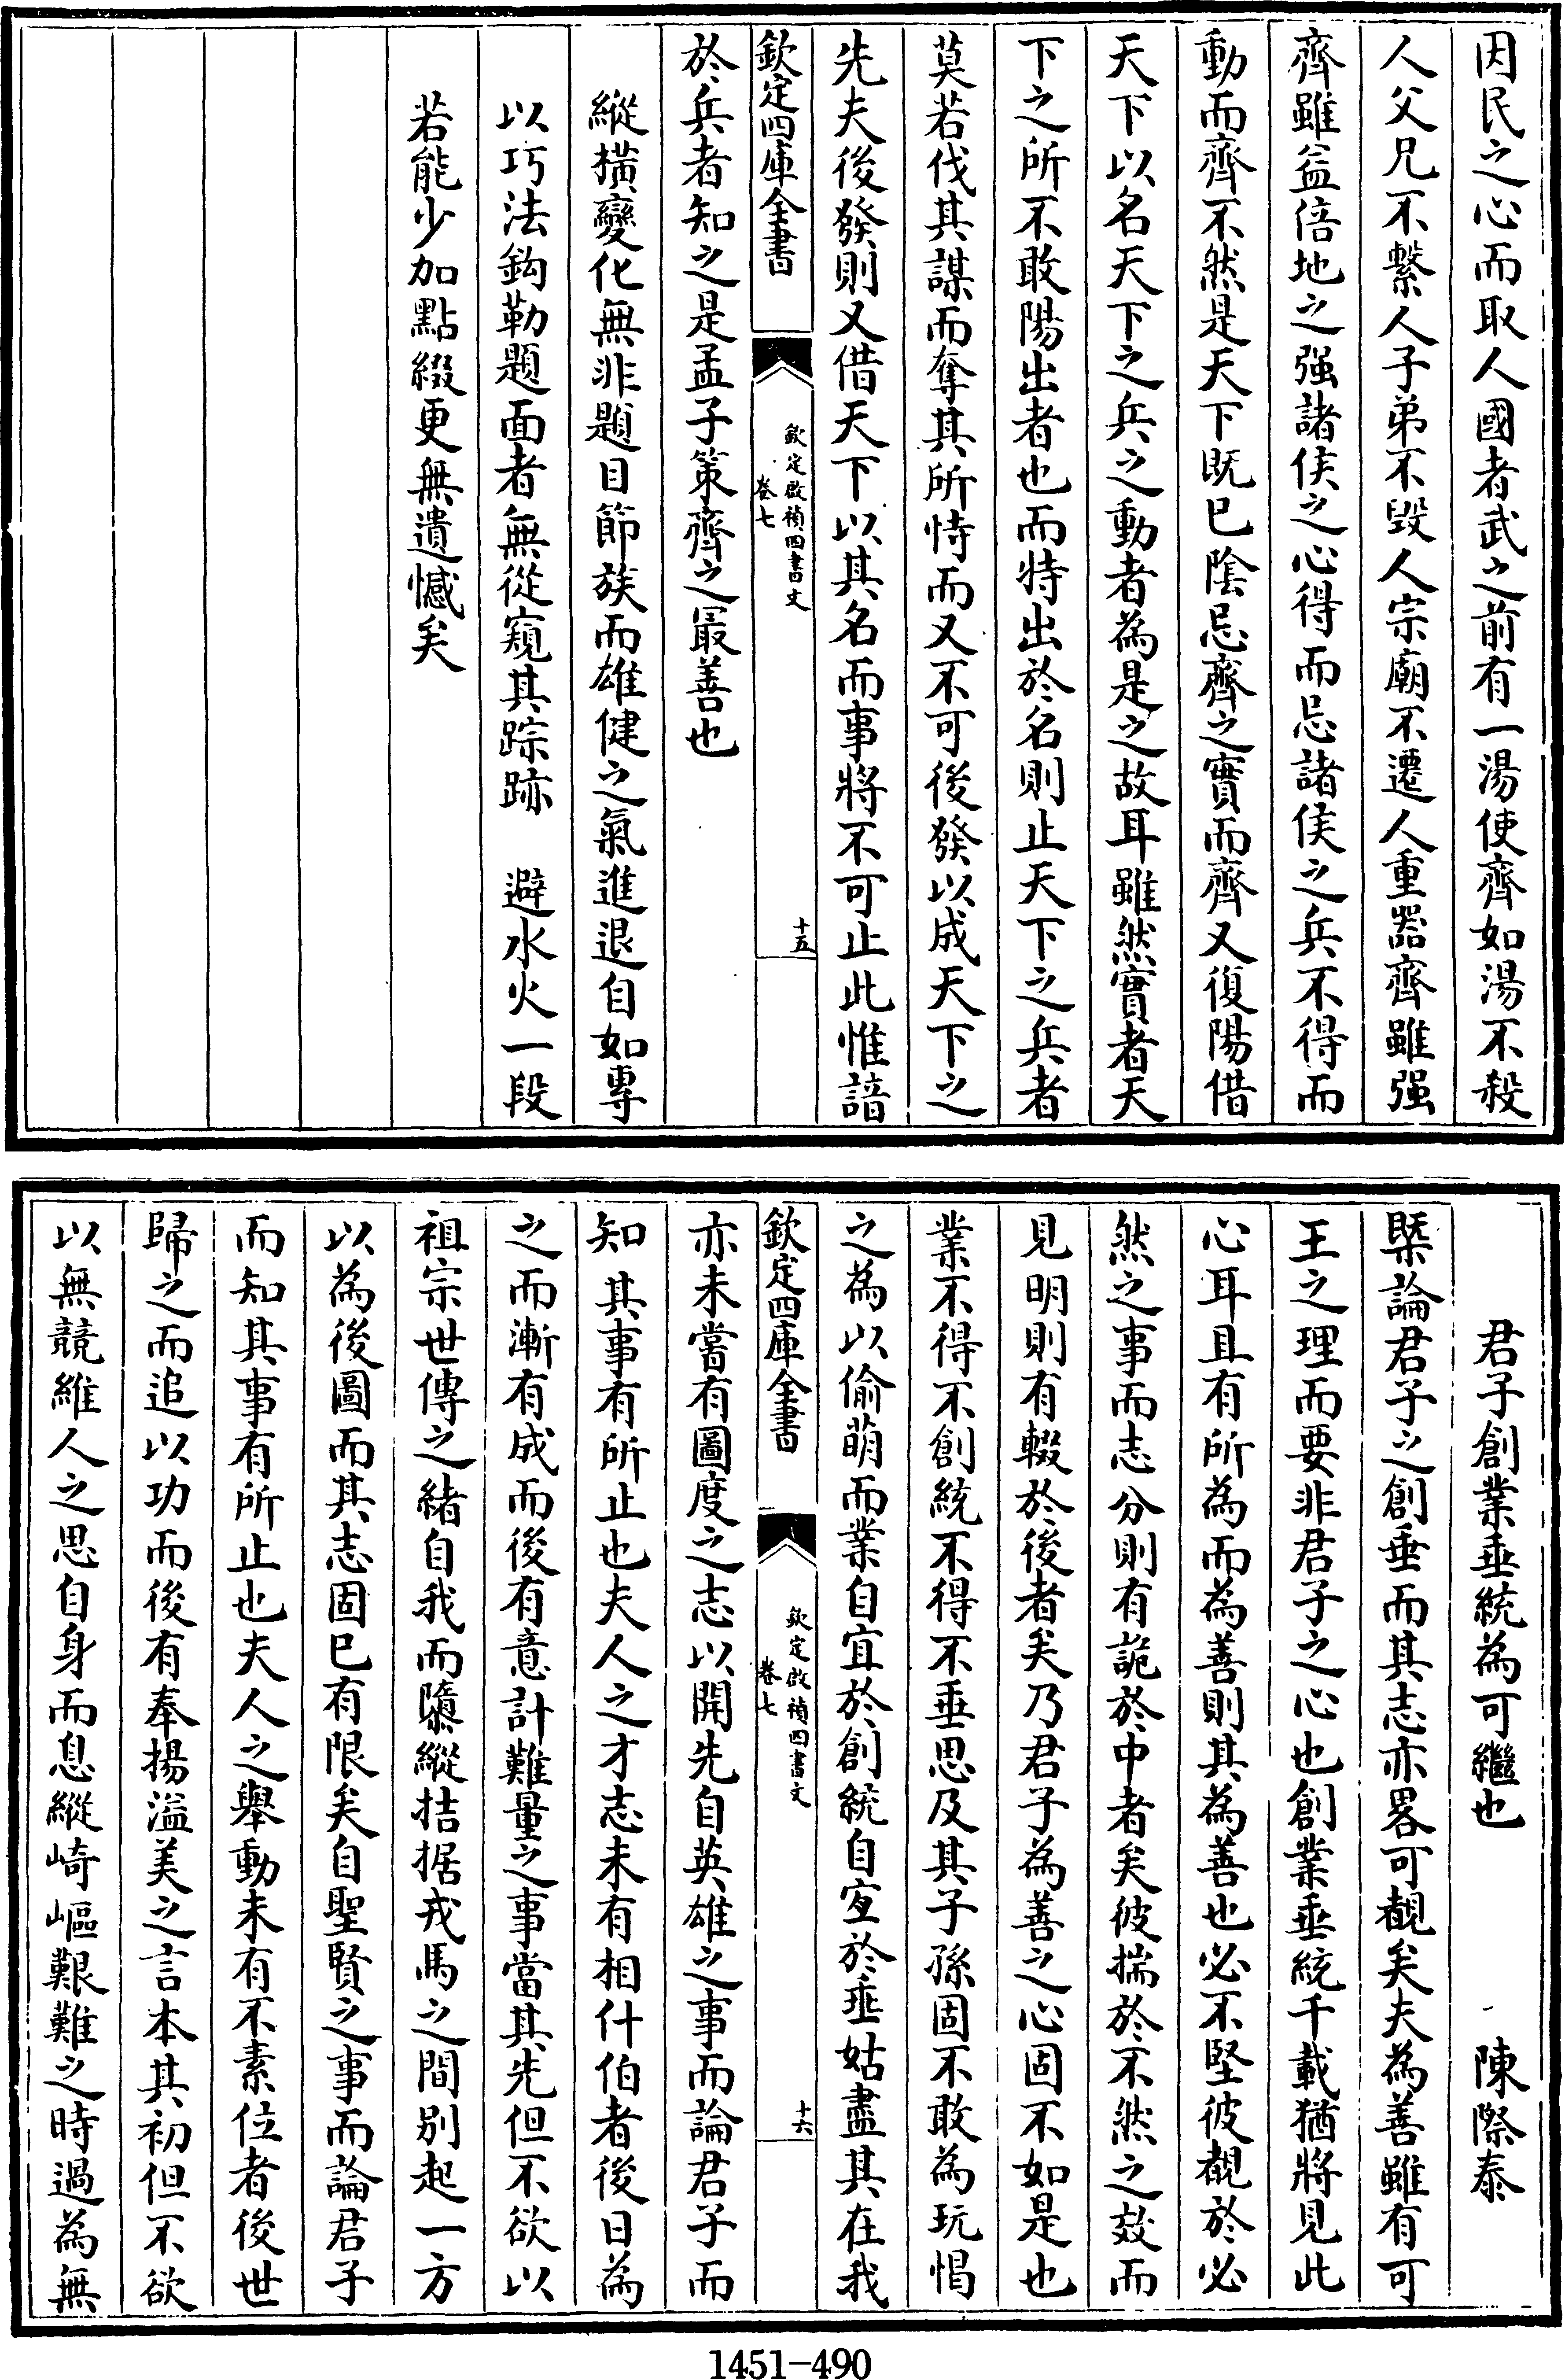 因民之心而取人國者武之前有一湯使齊如湯不殺
人父兄不繫人子弟不毀人宗廟不遷人重器齊雖强
齊雖益倍地之强諸侯之心得而忌諸侯之兵不得而
動而齊不然是天下既已陰忌齊之實而齊又復陽借
天下以名天下之兵之動者為是之故耳雖然實者天
下之所不敢陽出者也而特出於名則止天下之兵者
莫若伐其謀而奪其所恃而又不可後發以成天下之
先夫後發則又借天下以其名而事將不可止此惟諳
欽定四庫全書
欽定啟禎四書文
卷七
十五
於兵者知之是孟子策齊之最善也
縱横變化無非題目節族而雄健之氣進退自如專
以巧法鈎勒題面者無從窺其踪跡 避水火一段
若能少加點綴更無遺憾矣
君子創業垂統為可繼也 陳際泰
槩論君子之創垂而其志亦畧可覩矣夫為善雖有可
王之理而要非君子之心也創業垂統千載猶將見此
心耳且有所為而為善則其為善也必不堅彼覩於必
然之事而志分則有詭於中者矣彼揣於不然之效而
見明則有輟於後者矣乃君子為善之心固不如是也
業不得不創統不得不垂思及其子孫固不敢為玩愒
之為以偷萌而業自宜於創統自宜於垂姑盡其在我
欽定四庫全書
欽定啟禎四書文
卷七
十六
亦未嘗有圖度之志以開先自英雄之事而論君子而
知其事有所止也夫人之才志未有相什伯者後日為
之而漸有成而後有意計難量之事當其先但不欲以
祖宗世傳之緒自我而隳縱拮据戎馬之間别起一方
以為後圖而其志固已有限矣自聖賢之事而論君子
而知其事有所止也夫人之舉動未有不素位者後世
歸之而追以功而後有奉揚溢美之言本其初但不欲
以無競維人之思自身而息縱崎嶇艱難之時過為無
1451-490